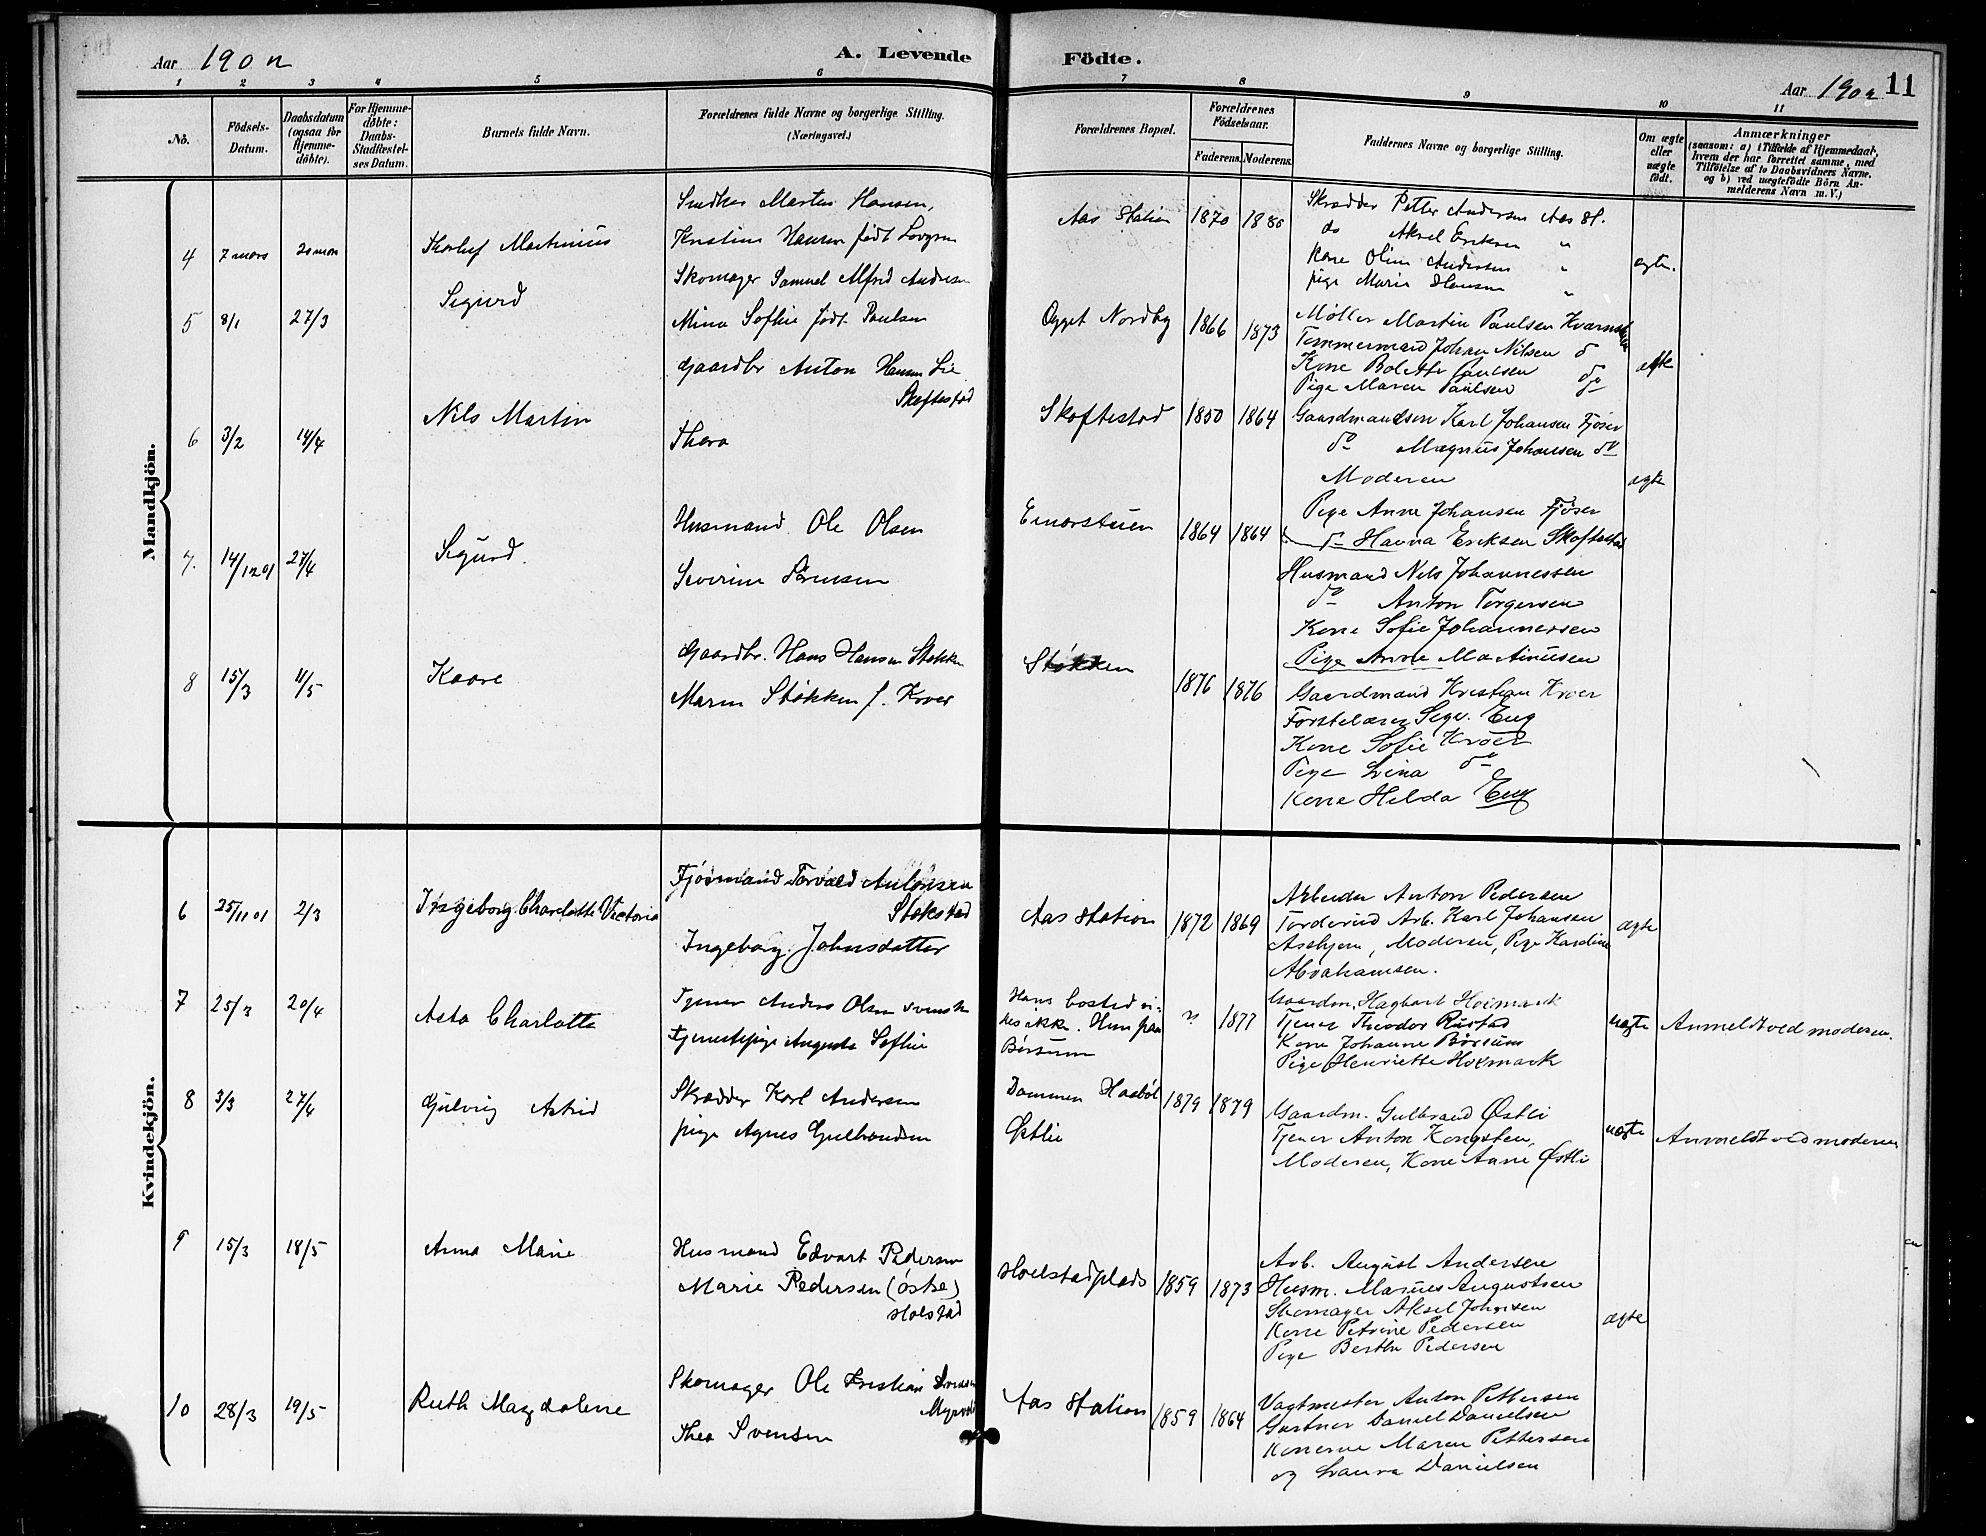 Aar 1902
A. Levende Födte.
Aar 1902 11
1 2 3 4 5 6 7 8 9 10 11
No.
Födsels-Datum.
Daabsdatum (ogsaa for Hjemme-döbte).
For Hjemme-döbte: Daabs-Stadfæstel-ses Datum.
Barnets fulde Navn.
Forældrenes fulde Navne og borgerlige Stilling. (Næringsvei.)
Forældrenes Bopæl.
Forældrenes Födselsaar.
Faderens. Moderens.
Faddernes Navne og borgerlige Stilling.
Om ægte eller uægte födt.
Anmærkninger
(saasom: a) i Tilfælde af Hjemmedaab, hvem der har forrettet samme, med Tilföielse af to Daabsvidners Navne. og b) ved uægtefödte Börn An-melderens Navn m. V.)
Mandkjön.
4 7 mars 20 mars
Thorluf Martinius
Smedker Martin Hansen,
Kristine Hansen født
Aas Station 1870 1880
Skrædder Petter Andersen Aas St.
do Aksel Eriksen "
Kone Oline Andersen "
pige Marie Hansen "
ægte.
5 8/1 27/3
Sigurd
Skomager Samuel Alfred Andersen
Mina Sofhie født Paulsen
Nordby 1866 1873
Møller Martin Paulsen
Tømmermand Johan Nilsen do
Kone Bolette Paulsen
Pige Maren Paulsen do
ægte
6 3/2 14/4
Nils Martin
Gaardbr Anton Hansen Lie
Skoftestad
Thora
Skoftestad 1850 1864
Gaardmandsøn Karl Johansen Fjøser
do Magnus Johansen do
Moderen
Pige Anne Johansen Fjøser
do Hanna Eriksen Skoftestad
ægte
7. 14/12 01 27/4
Sigurd.
Husmand Ole Olsen
Severine Sørensen
Enorstuen 1864 1864
Husmand Nils Johannessen
do Anton Torgersen
Kone Sofie Johannessen
Pige Anne Martinusen
8 15/3 11/5
Kaare
Gaardbr. Hans Hansen Støkken
Maren Støkken f. Kroer
Støkken 1876 1876
Gaardmand Kristian Kroer
Forstelærer Eug
Kone Sofie Kroer
Pige Lina do
Kone Hilda Eug
Kvindekjön.
6 25/11 01 2/3
Ingeborg Charlotte Victoria
Fjøsmand Torvald Antonsen
Stokstad
Ingeborg Johnsdatter
Aas Station 1872 1869
Arbeider Anton Pedersen
Torderud Arb. Karl Johansen
Askjem, Moderen, Pige Karoline
Abrahamsen.
ægte
7 25/3 20/4
Asta Charlotte
Tjener Anders Olsen svensk
Tjenestepige Augusta Sofhie
Hans bosted vi-
des ikke. Hun paa
Børsum
" 1877
Gaardm. Hagbart Hoxmark
Tjener Theodor Rustad
Kone Johanne Børsum
Pige Henriette Hoxmark
uægte Anmeldt ved moderen.
8 3/3 27/4
Gulvig Astrid
Skrædder Karl Andersen
pige Agnes Gulbrandsen
Dammen Haabøl
Østlie
1879 1879
Gaardm. Gulbrand Østli
Tjener Anton Kongsten,
Moderen, Kone Anne Østli
uægte Anmeldt ved moderen
9 15/3 18/5
Anna Marie
Husmand Edvart Pedersen
Marie Pedersen (østre)
Holstad
Holstadplads 1859 1873
Arb. August Andersen
Husm. Marius Augustsen
Skomager Aksel Johnsen
Kone Petrine Pedersen
Pige Berthe Pedersen
ægte
10 28/3 19/5
Ruth Magdalene
Skomager Ole Kristian Svensen
Thea Svensen
Aas Station 1859 1864
Vagtmester Anton Pettersen
Gartner Daniel Danielsen
Konerne Maren Pettersen
og Laura Danielsen